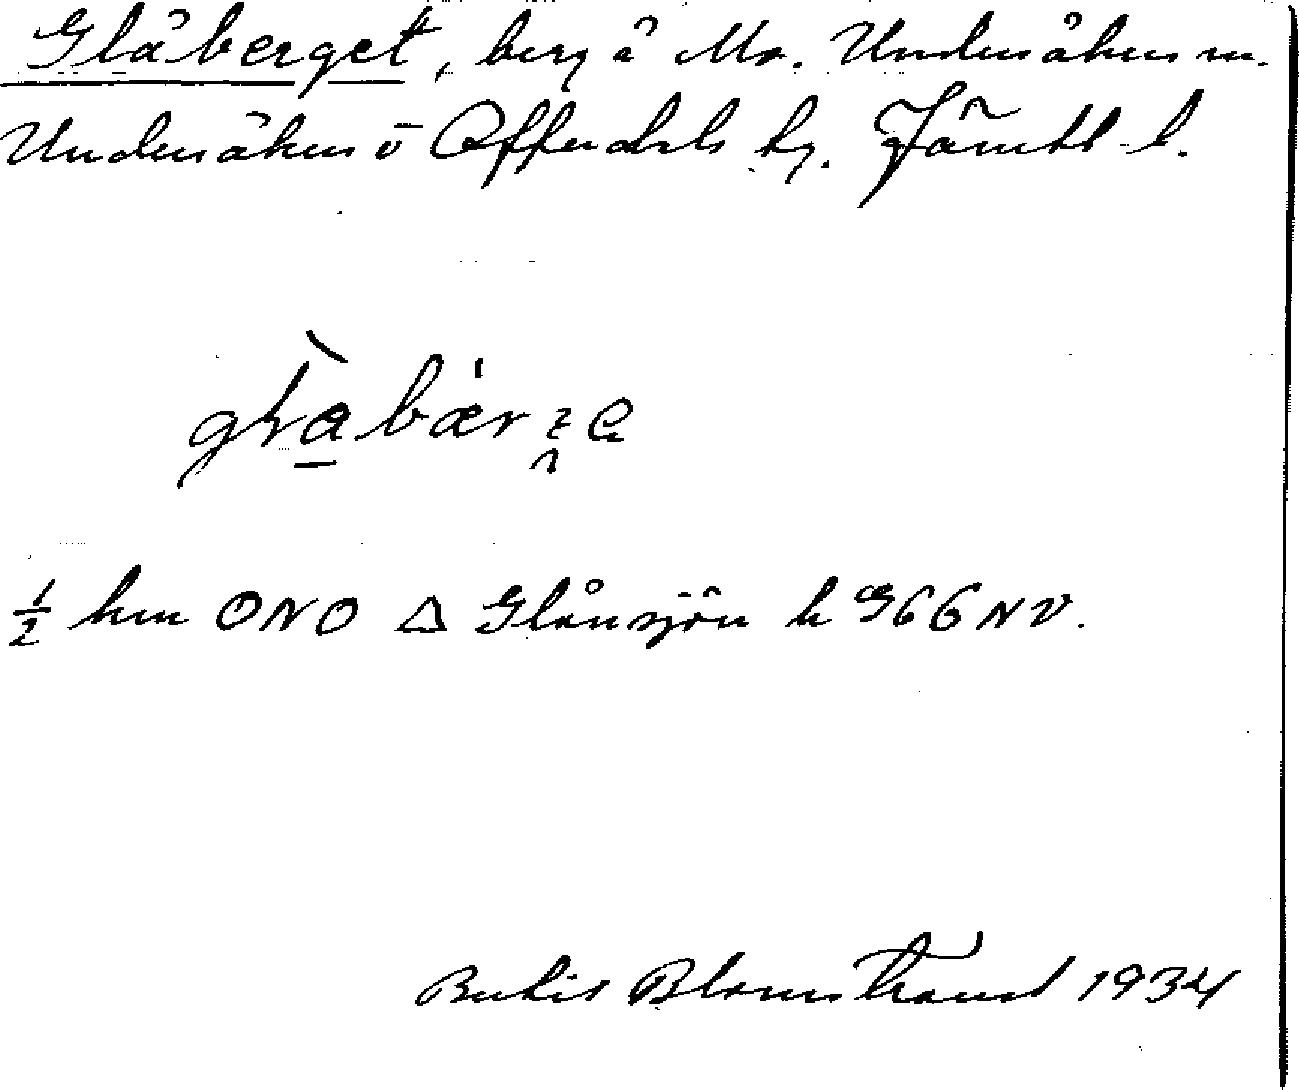 Glåberget, berg i Mo. Undersåkers sn.
Undersåkers o Offerdals tg. Jämtl. l.
½ km ONO △ Glånsjön k G66NV.
Bertil Blomstrand 1934